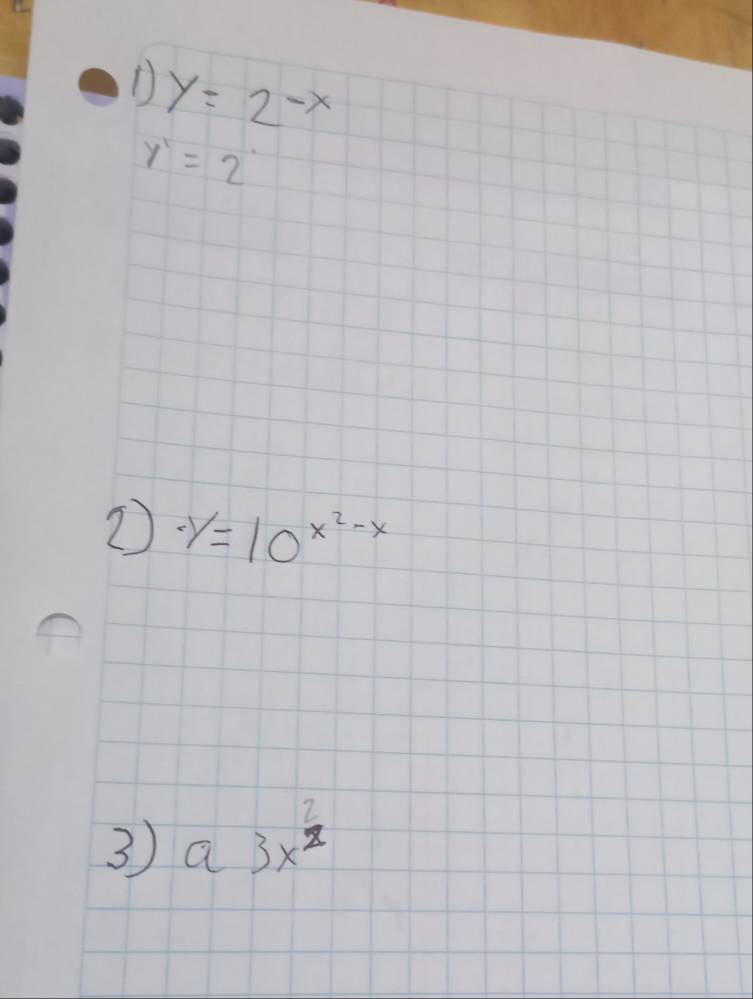 1) y = 2^-x
y' = 2
2) y = 10^x²-x
3) a 3x²